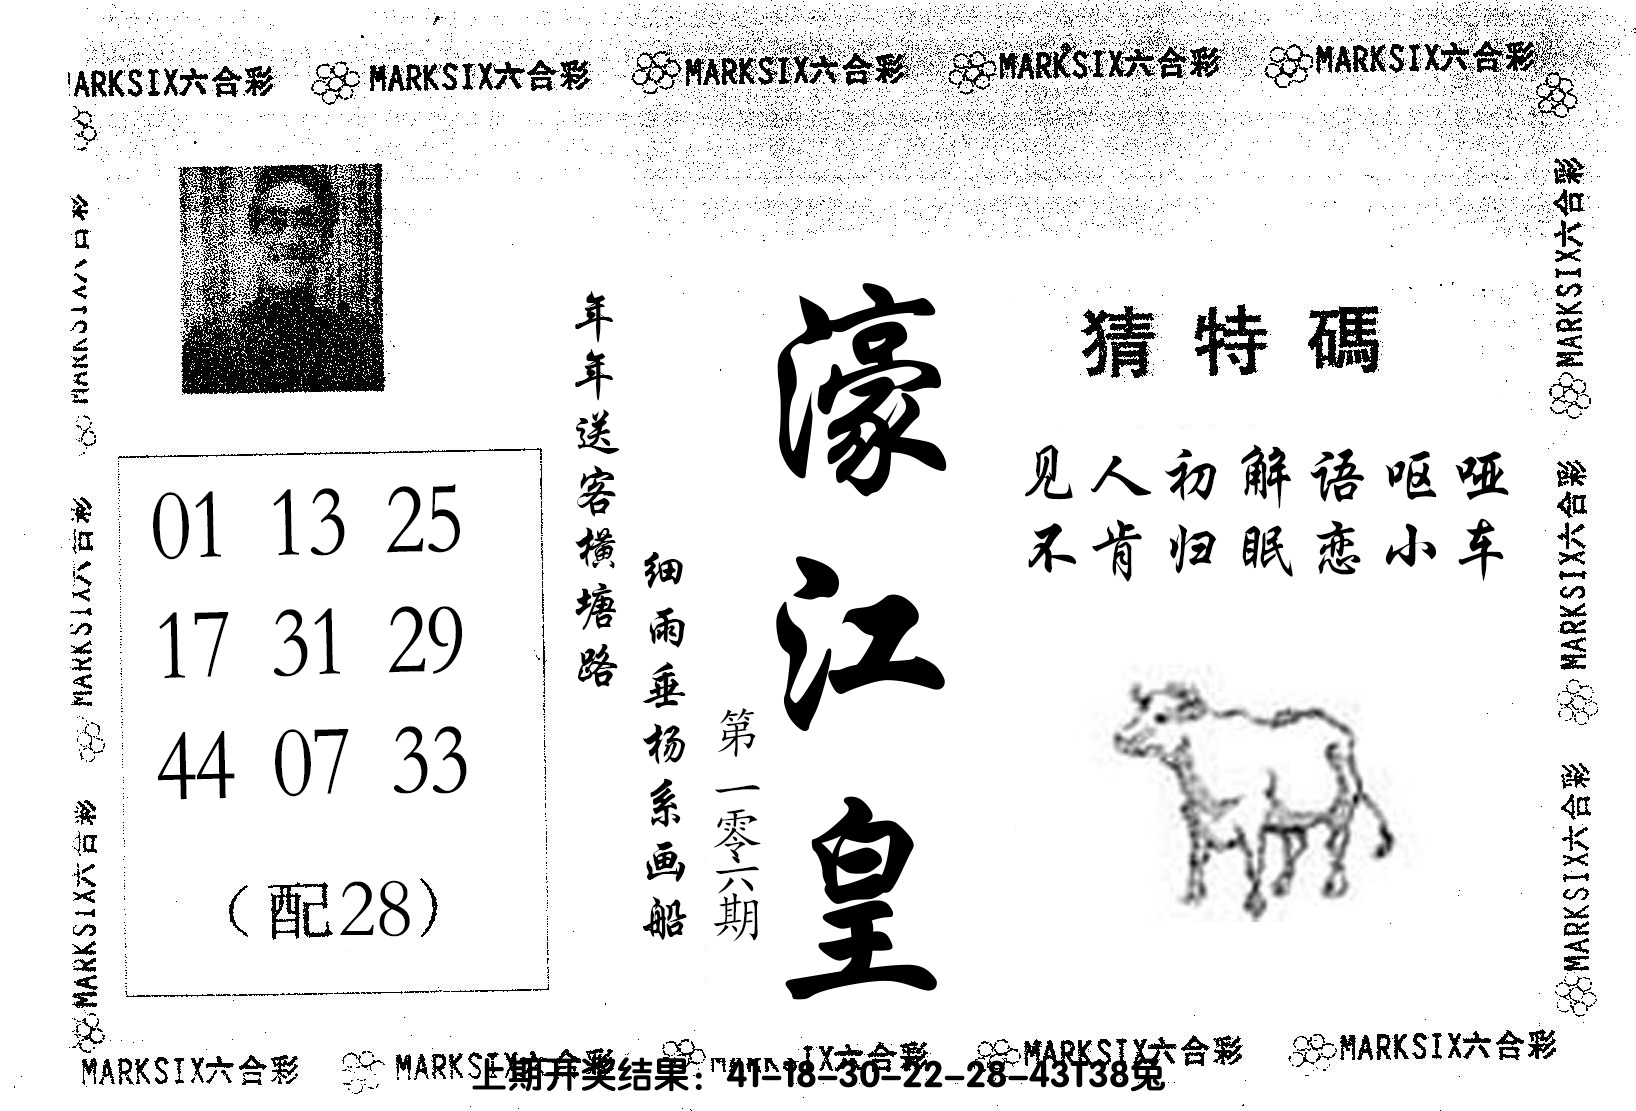 MARKSIX六合彩 MARKSIX六合彩 MARKSIX六合彩 MARKSIX六合彩 MARKSIX六合彩
猜特碼
见人初解语呕哑
不肯归眠恋小车
濠江皇
第一零六期
年年送客横塘路
细雨垂杨系画船
01 13 25
17 31 29
44 07 33
（配28）
MARKSIX六合彩
MARKSIX六合彩
MARKSIX六合彩
MARKSIX六合彩
MARKSIX六合彩
MARKSIX六合彩
MARKSIX六合彩 MARKSIX六合彩 IX六合彩 MARKSIX六合彩 MARKSIX六合彩
上期开奖结果：41-18-30-22-28-43T38兔